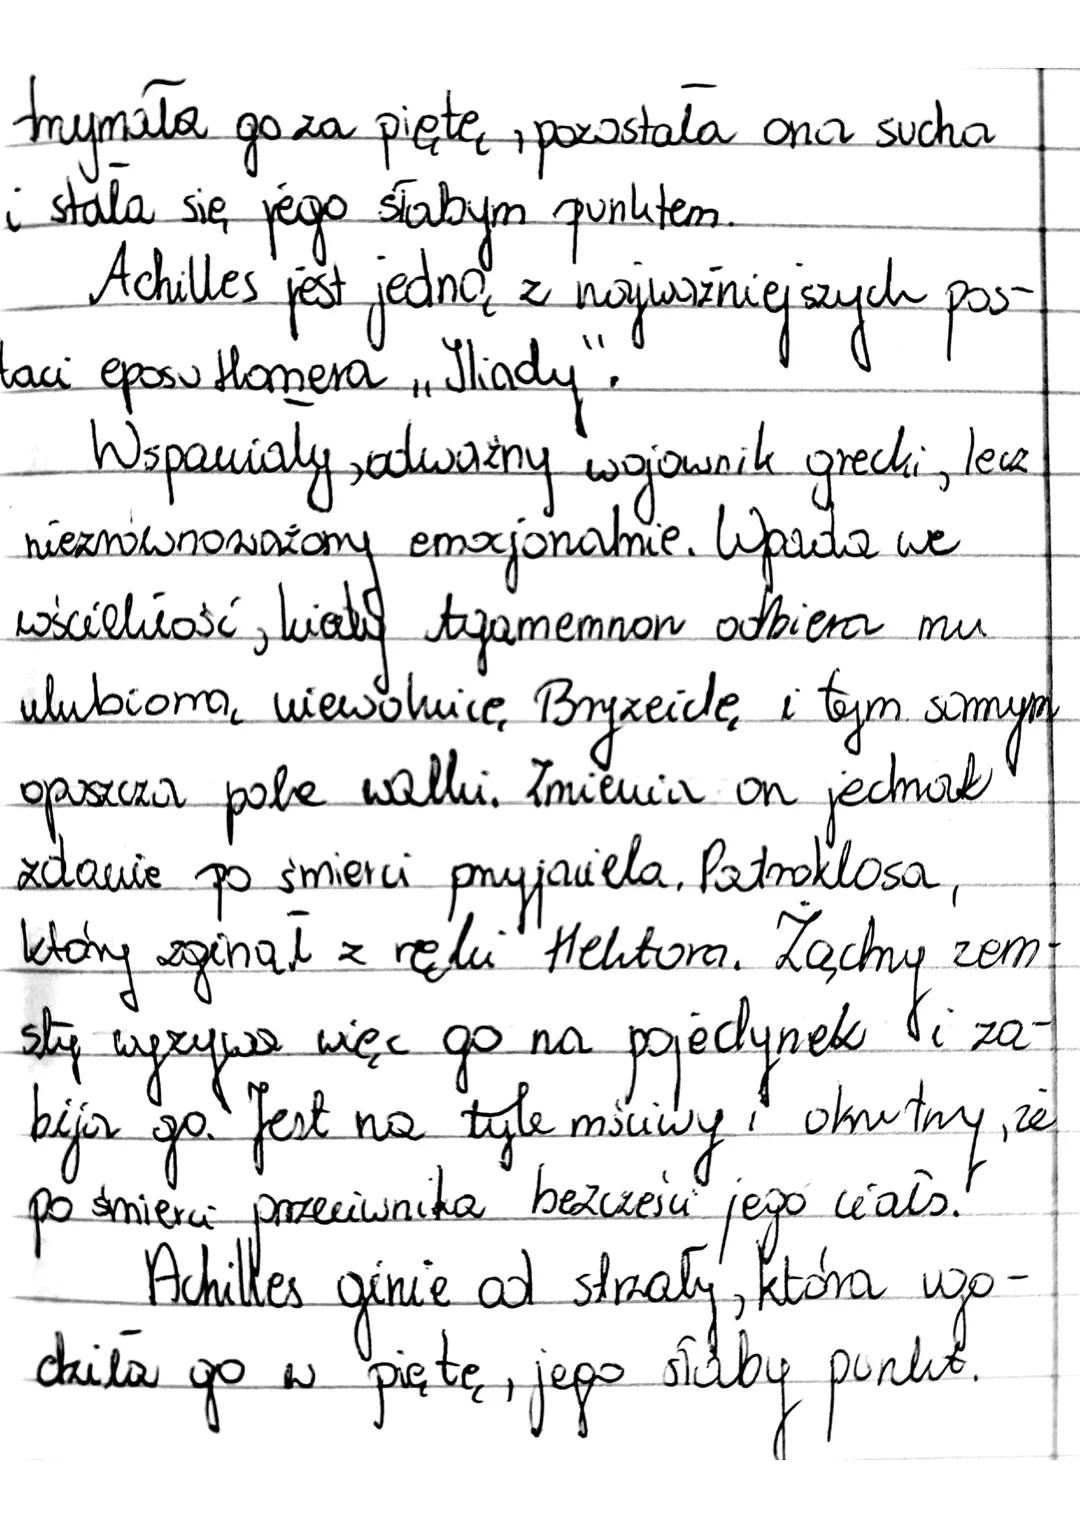 trzymała go za piętę, pozostała ona sucha
i stała się jego słabym punktem.
Achilles jest jedną z najważniejszych pos-
taci eposu Homera „Iliady”.
Wspaniały, odważny wojownik grecki, lecz
niezrównoważony emocjonalnie. Wpada we
wściekłość, kiedy Agamemnon odbiera mu
ulubioną niewolnicę Bryzeidę i tym samym
opuszcza pole walki. Zmienia on jednak
zdanie po śmierci przyjaciela, Patroklosa,
który zginął z ręki Hektora. Żądny zem-
sty wyzywa więc go na pojedynek i za-
bija go. Jest na tyle mściwy i okrutny, że
po śmierci przeciwnika bezcześci jego ciało.
Achilles ginie od strzały, która ugo-
dziła go w piętę, jego słaby punkt.